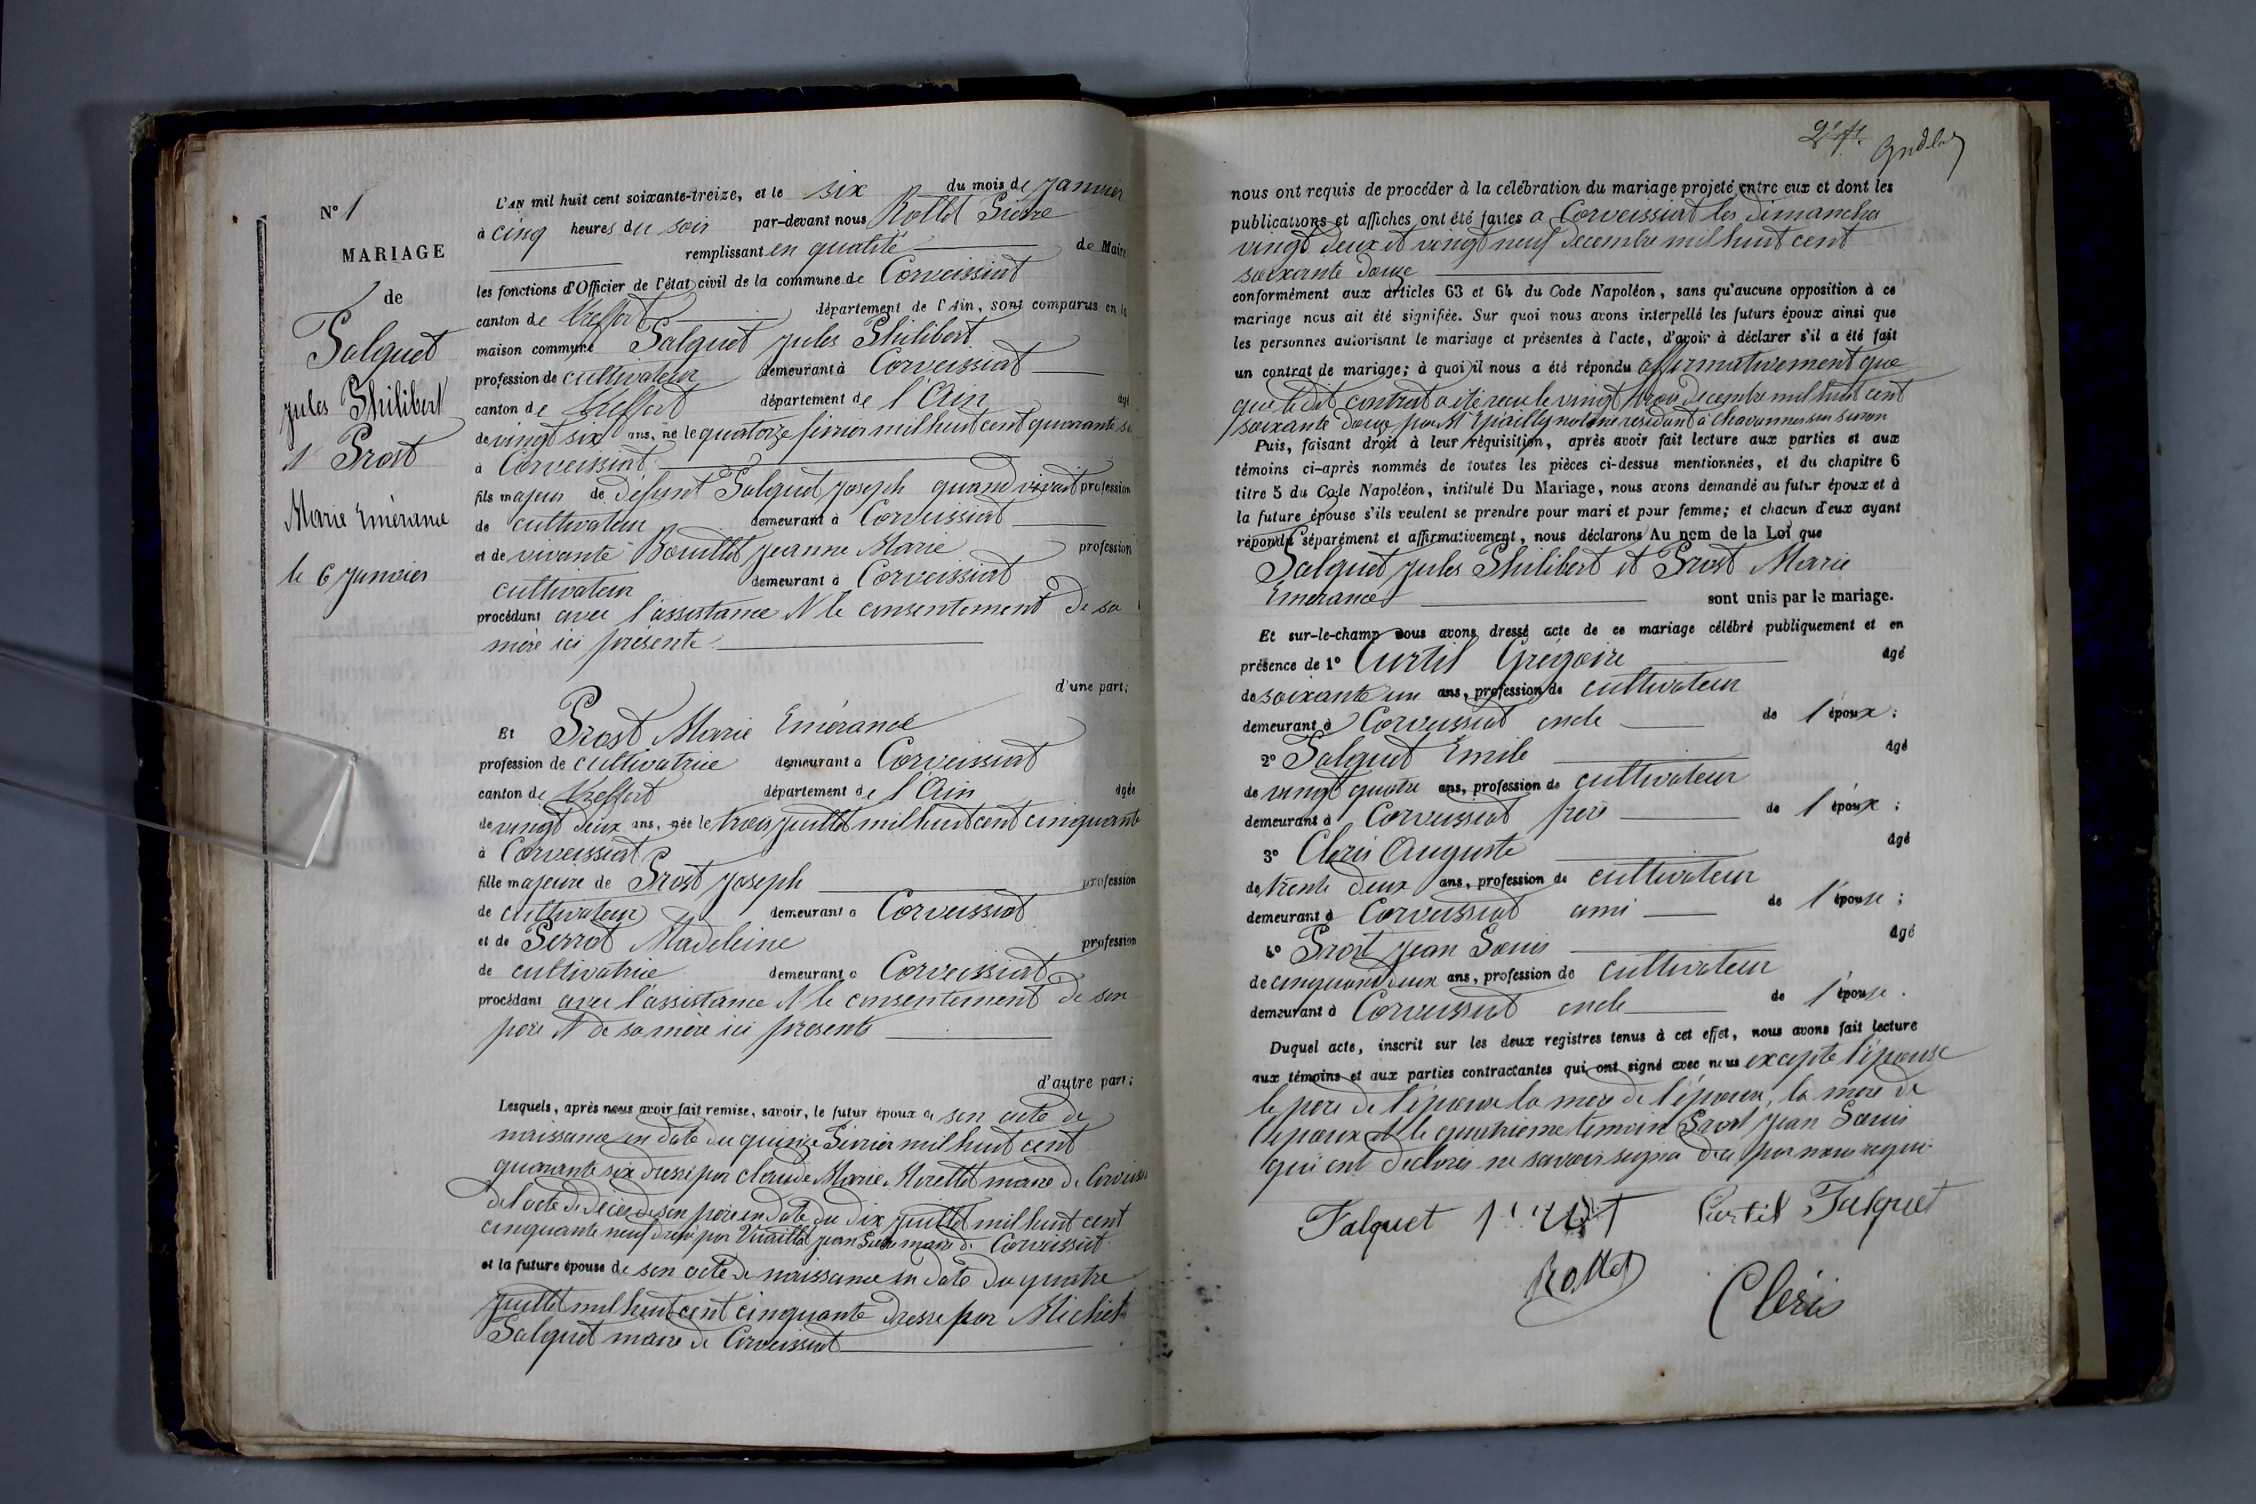 N° 1
MARIAGE
de
Falquet
jules Philibert
et Prost
Marie Emérance
le 6 janvier
L'AN mil huit cent soixante-treize, et le six du mois de janvier
à cinq heures du soir par-devant nous Rollet Pierre
remplissant en qualité de Maire
les fonctions d'Officier de l'état civil de la commune de Corveissiat
canton de Treffort département de l'Ain, sont comparus en la
maison commune Falquet jules Philibert
profession de cultivateur demeurant à Corveissiat
canton de Treffort département de l'Ain âgé
de vingt six ans, né le quatorze février mil huit cent quarante six
à Corveissiat
fils majeur de défunt Falquet joseph quand vivait profession
de cultivateur demeurant à Corveissiat
et de vivante Bouillet jeanne Marie profession
cultivateur demeurant à Corveissiat
procédant avec l'assistance et le consentement de sa
mère ici présente
d'une part;
Et Prost Marie Emérance
profession de cultivatrice demeurant à Corveissiat
canton de Treffort département de l'Ain âgée
de vingt deux ans, née le trois juillet mil huit cent cinquante
à Corveissiat
fille majeure de Prost joseph profession
de cultivateur demeurant à Corveissiat
et de Perrot Madeleine profession
de cultivatrice demeurant à Corveissiat
procédant avec l'assistance et le consentement de son
père et de sa mère ici présents
d'autre part;
Lesquels, après nous avoir fait remise, savoir, le futur époux de son acte de
naissance en date du quinze Février mil huit cent
quarante six dressé par claude Marie Morellet maire de Corveissiat
de l'acte de décès de son père en date du dix juillet mil huit cent
cinquante neuf dressé par Vuaillat jean Pierre maire de Corveissiat
et la future épouse de son acte de naissance en date du quatre
juillet mil huit cent cinquante dressé par Michel
Falquet maire de Corveissiat
2e ft.
nous ont requis de procéder à la célébration du mariage projeté entre eux et dont les
publications et affiches ont été faites à Corveissiat les dimanches
vingt deux et vingt neuf décembre mil huit cent
soixante douze
conformément aux articles 63 et 64 du Code Napoléon, sans qu'aucune opposition à ce
mariage nous ait été signifiée. Sur quoi nous avons interpellé les futurs époux ainsi que
les personnes autorisant le mariage et présentes à l'acte, d'avoir à déclarer s'il a été fait
un contrat de mariage; à quoi il nous a été répondu affirmativement que
que le dit contrat a été recu le vingt trois decembre mil huit cent
soixante douze par Me notaire résidant à Chavannes sur Suran
Puis, faisant droit à leur réquisition, après avoir fait lecture aux parties et aux
témoins ci-après nommés de toutes les pièces ci-dessus mentionnées, et du chapitre 6
titre 5 du Code Napoléon, intitulé Du Mariage, nous avons demandé au futur époux et à
la future épouse s'ils veulent se prendre pour mari et pour femme; et chacun d'eux ayant
répondu séparément et affirmativement, nous déclarons Au nom de la Loi que
Falquet jules Philibert et Prost Marie
Emérance sont unis par le mariage.
Et sur-le-champ nous avons dressé acte de ce mariage célébré publiquement et en
présence de 1° Curtil Grégoire âgé
de soixante un ans, profession de cultivateur
demeurant à Corveissiat oncle de l'époux;
2° Falquet Emile âgé
de vingt quatre ans, profession de cultivateur
demeurant à Corveissiat frère de l'époux;
3° Cléris Auguste âgé
de trente deux ans, profession de cultivateur
demeurant à Corveissiat ami de l'épouse;
4° Prost jean Louis âgé
de cinquante deux ans, profession de cultivateur
demeurant à Corveissiat oncle de l'épouse.
Duquel acte, inscrit sur les deux registres tenus à cet effet, nous avons fait lecture
aux témoins et aux parties contractantes qui ont signé avec nous excepté l'épouse
le père de l'épouse la mère de l'épouse, la mère de
l'époux et le quatrième temoin Prost jean Louis
qui ont déclarés ne savoir signer de ce par nous requis
Falquet Curtil Falquet
Rollet
Cléris